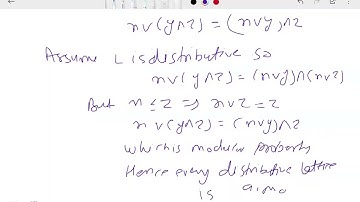 x∨(y∧z) = (x∨y)∧z
Assume L is distributive so
x∨(y∧z) = (x∨y)∧(x∨z)
But x ≤ z ⇒ x∨z = z
x∨(y∧z) = (x∨y)∧z
which is modular property
Hence every distributive lattice
is a mo